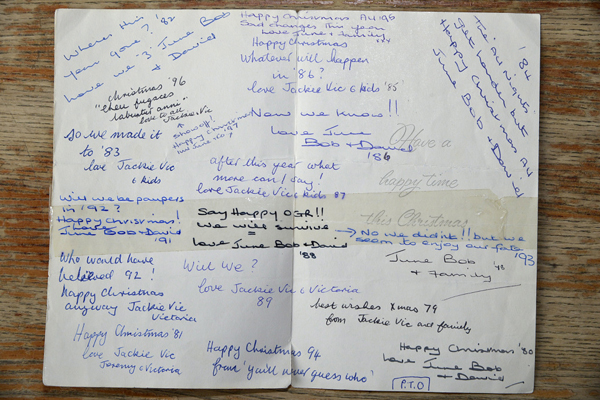 Where has '82
Year Gone?
Love June Bob
& David
Christmas '96
"eheu fugaces
labuntur anni"
love to all
Jackie, Vic
↑
show off!
Happy Christmas
So we made it
to '83
love Jackie Vic
& kids
Will we be paupers
in '92?
Happy Christmas!
Love
June Bob & David
'91
Who would have
believed 92!
happy Christmas
anyway Jackie Vic
Victoria
Happy Christmas '81
love Jackie Vic
Jeremy & Victoria
Happy Christmas All '96
Sad changes this year
love June & family
Happy Christmas
Whatever will happen
in '86?
love Jackie Vic & kids '85'
Now we know!!
Love June
Bob & David
'86
after this year what
more can I say!
love Jackie Vic & kids 87
Say Happy OSR!!
We will survive
=
love June Bob & David
'88
Will We?
love Jackie Vic & Victoria
89
Happy Christmas 94
from 'you'll never guess who'
'84
The old nights
get harder but
Happy Christmas All
June Bob & David
Have a
happy time
this Christmas
→ No we didn't!! but we
seem to enjoy our fate '93
June Bob
& Family
best wishes Xmas 79
from Jackie Vic and family
Happy Christmas '80
love June Bob
& David
P.T.O